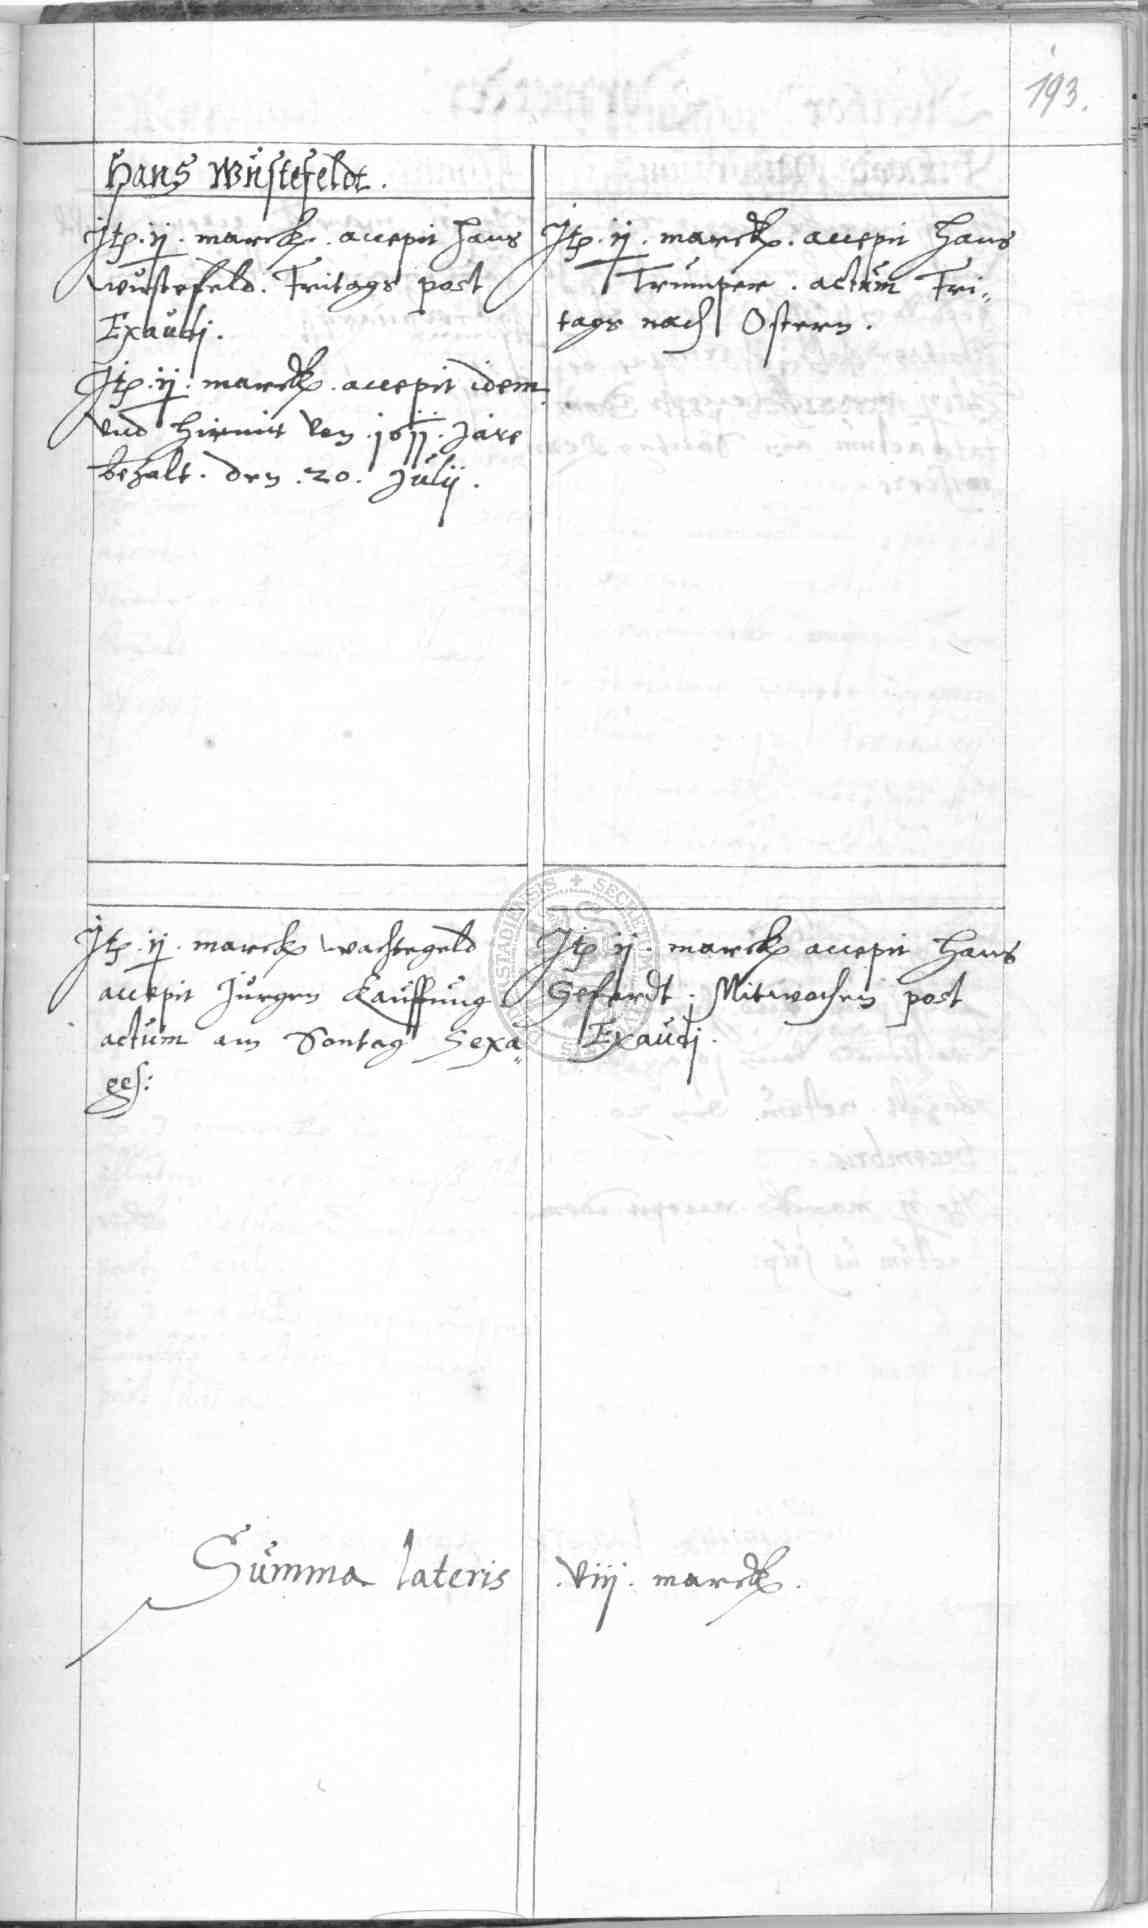 193.
Hans Wüstefeldt.
Jtꝫ. ij. marck. accepit Hans
wüstefeld. Fritags post
Exaudj.
Jtꝫ. ij. marck. accepit idem
vnd hiemit von .1611. Jare
bezalt. den .20. Julij.
Jtꝫ. ij. marck. accepit Hans
Trümper. actum Fri-
tags nach Ostern.
Jtꝫ. ij. marck wachtegeld
accepit Jürgen Kauffung
actum am Sontag Sexa-
ges:
Jtꝫ ij. marck accepit Hans
Geferdt. Mitwochen post
Exaudj.
Summa lateris .viij. marck.